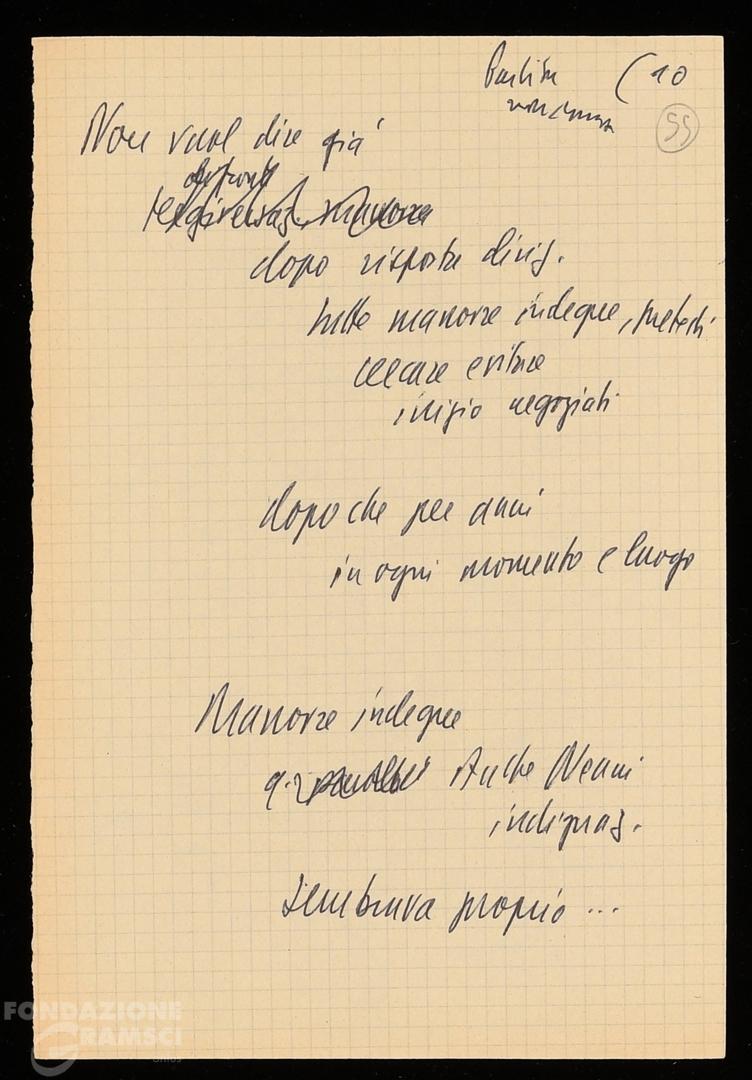 (10
55
Non vuol dire già
dopo risposta divis.
tutte manovre indegne, pretesti
cercare evitare
inizio negoziati
dopo che per anni
in ogni momento e luogo
Manovre indegne
Anche Nenni
indignaz.
Sembrava proprio ...
FONDAZIONE
GRAMSCI